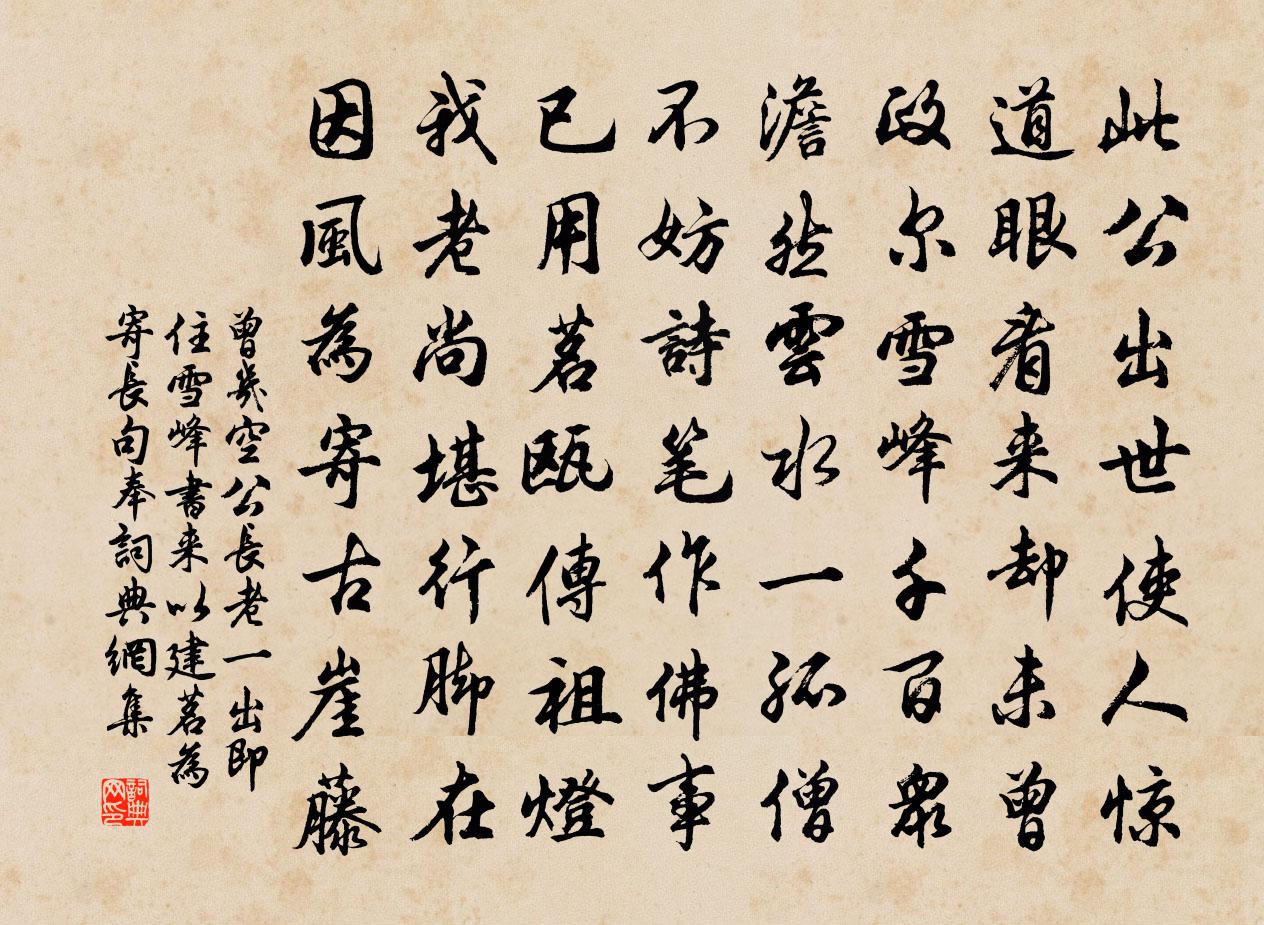 此公出世使人惊
道眼看来却未曾
政尔雪峰千百眾
澹然雲水一孤僧
不妨詩笔作佛事
已用茗瓯傳祖燈
我老尚堪行脚在
因風為寄古崖藤
曾幾空公長老一出即
住雪峰書来以建茗為
寄長句奉詞典網集
詞典
网印